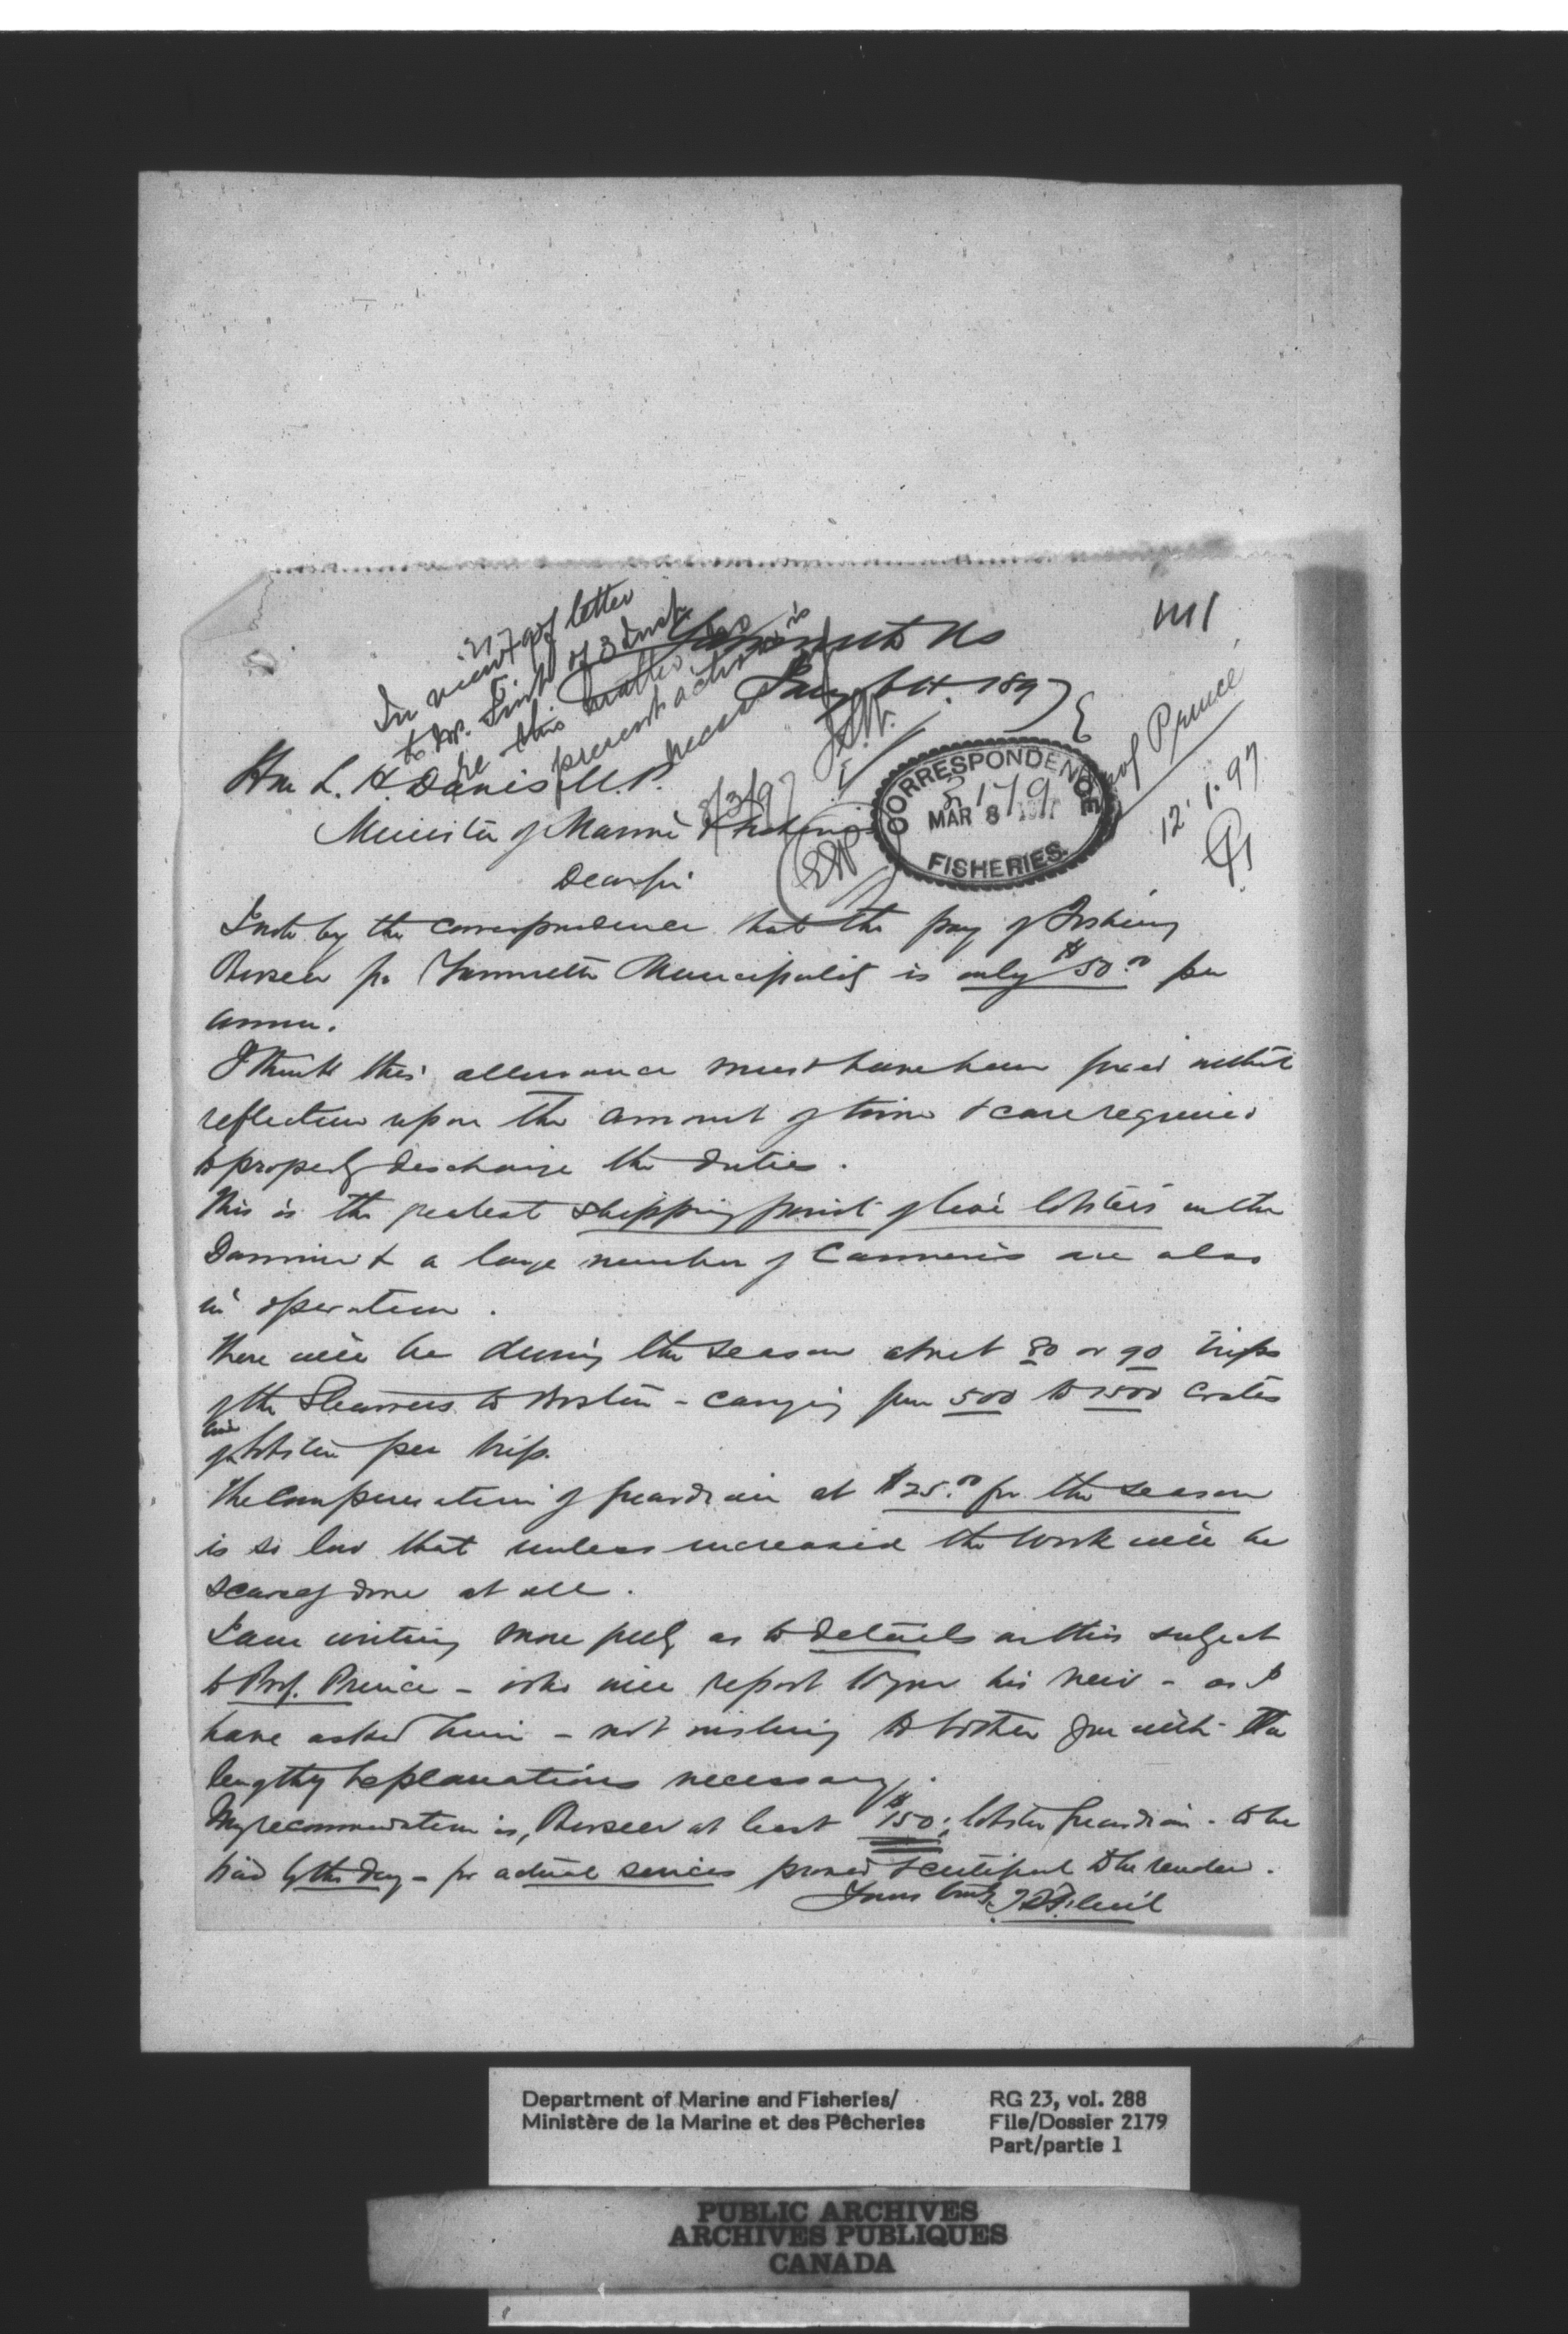 1111
2179
In view of letter
to Mr. Flint of 3 Inst
re this matter no
present action is
necessary
8/3/97
Yarmouth NS
Jany 6th 1897
Prof Prince
12.1.97
CORRESPONDENCE
5179
MAR 8 1897
FISHERIES.
Hon L. H. Davies M.P.
Minister of Marine & Fisheries
Dear Sir
I note by the correspondence that the pay of Fishery
Overseer for Yarmouth Municipality is only $50.00 per
annum.
I think this allowance must have been fixed without
reflection upon the amount of time & care required
to properly discharge the duties.
This is the greatest shipping point of live lobsters in the
Dominion & a large number of Canneries are also
in operation.
There will be during the season about 80 or 90 trips
of the Steamers to Boston - carrying from 500 to 1500 crates
of live lobsters per trip.
The Compensation of guardian at $25.00 for the season
is so low that unless increased the work will be
scarcely done at all.
I am writing more fully as to details on this subject
to Prof. Prince - who will report to you his view - as I
have asked him - not wishing to bother you with the
lengthy explanations necessary.
My recommendation is, Overseer at least $150; lobster guardian - to be
paid by the day - for actual services proved & certified to be rendered.
Yours truly T. B. Flint
Department of Marine and Fisheries/
Ministère de la Marine et des Pêcheries
RG 23, vol. 288
File/Dossier 2179
Part/partie 1
PUBLIC ARCHIVES
ARCHIVES PUBLIQUES
CANADA